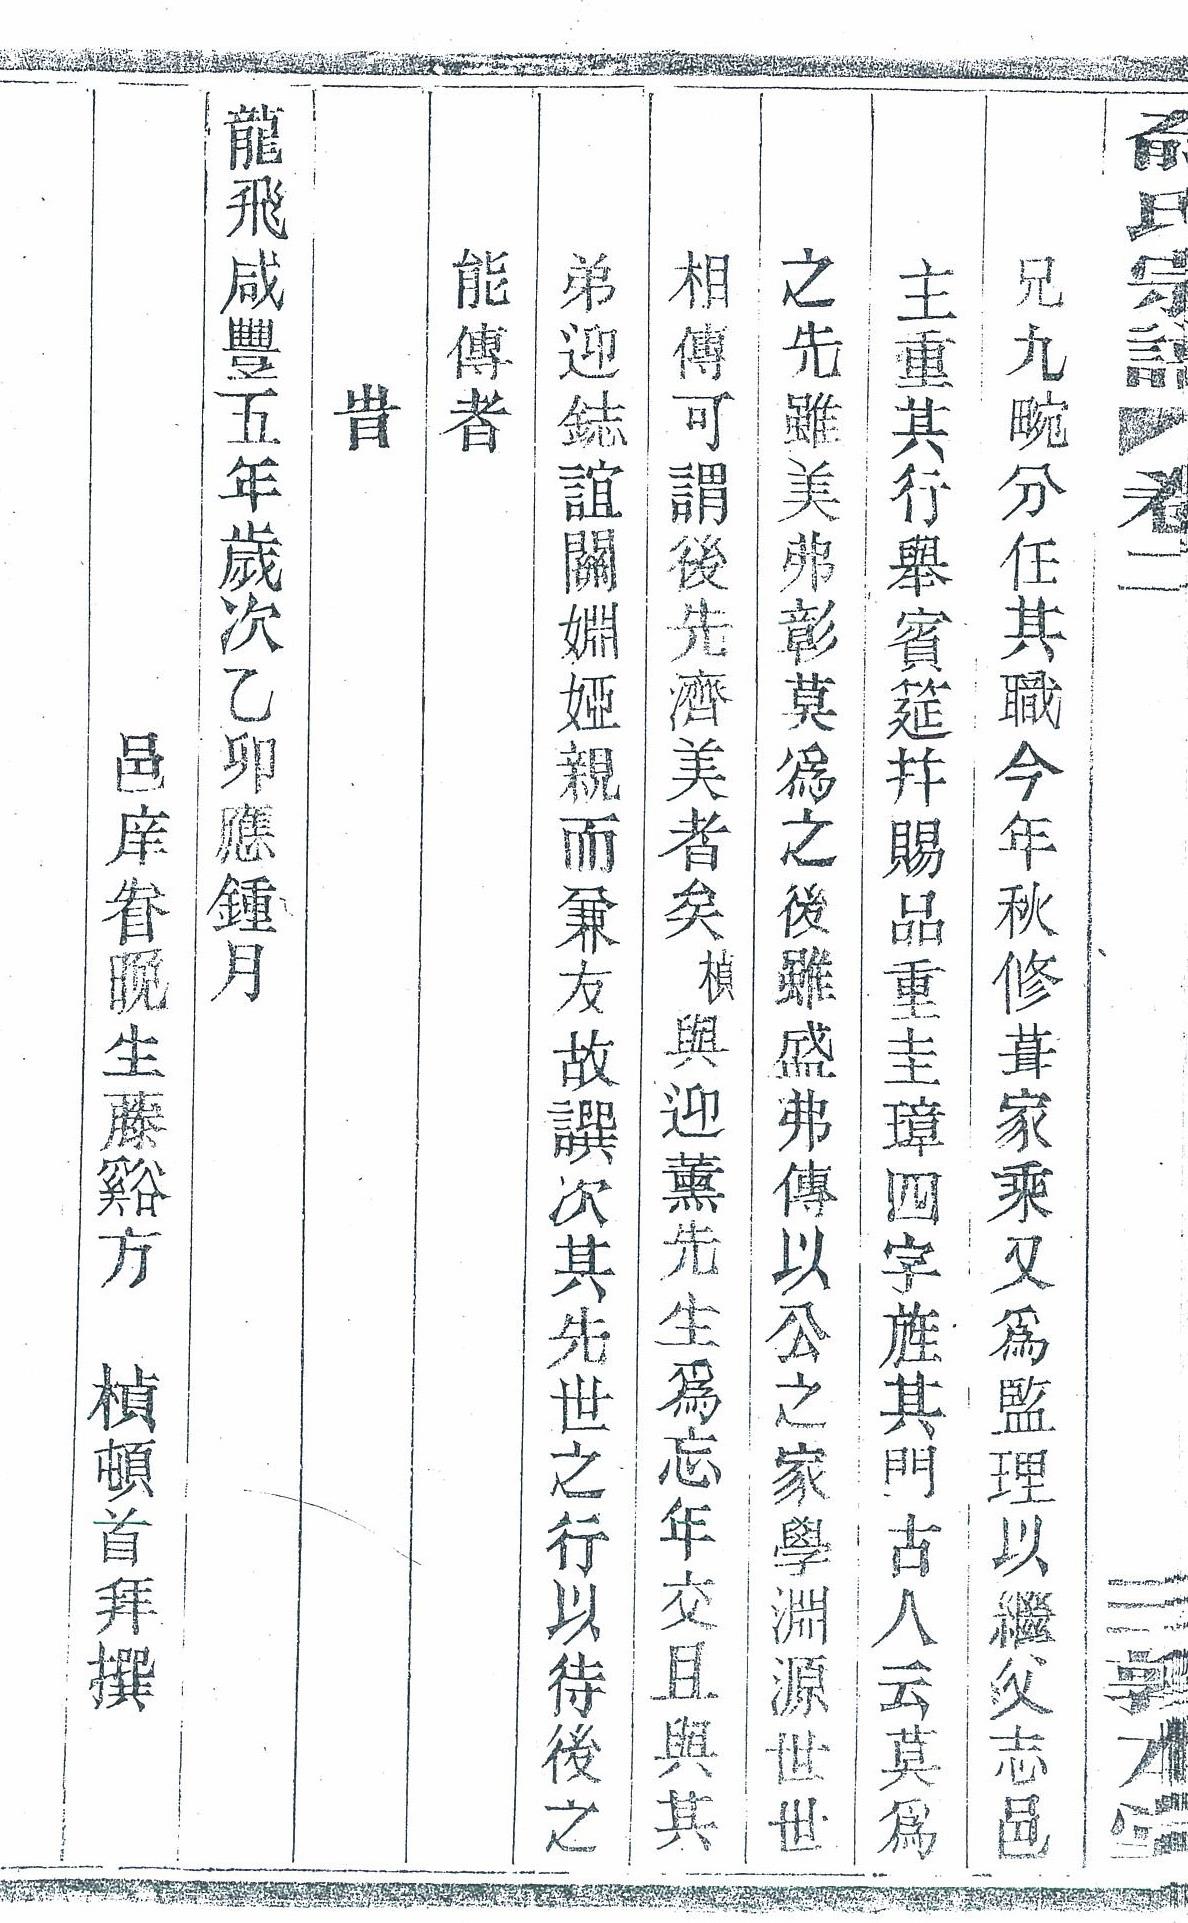 俞氏宗譜 卷二
兄九畹分任其職今年秋修葺家乘又爲監理以繼父志邑
主重其行舉賓筵幷賜品重圭璋四字旌其門古人云莫爲
之先雖美弗彰莫爲之後雖盛弗傳以公之家學淵源世世
相傳可謂後先濟美者矣楨與迎薰先生爲忘年交且與其
弟迎鋕誼關婣婭親而兼友故譔次其先世之行以待後之
能傳者
旹
龍飛咸豐五年歲次乙卯應鍾月
邑庠眷晚生藤谿方 楨頓首拜撰